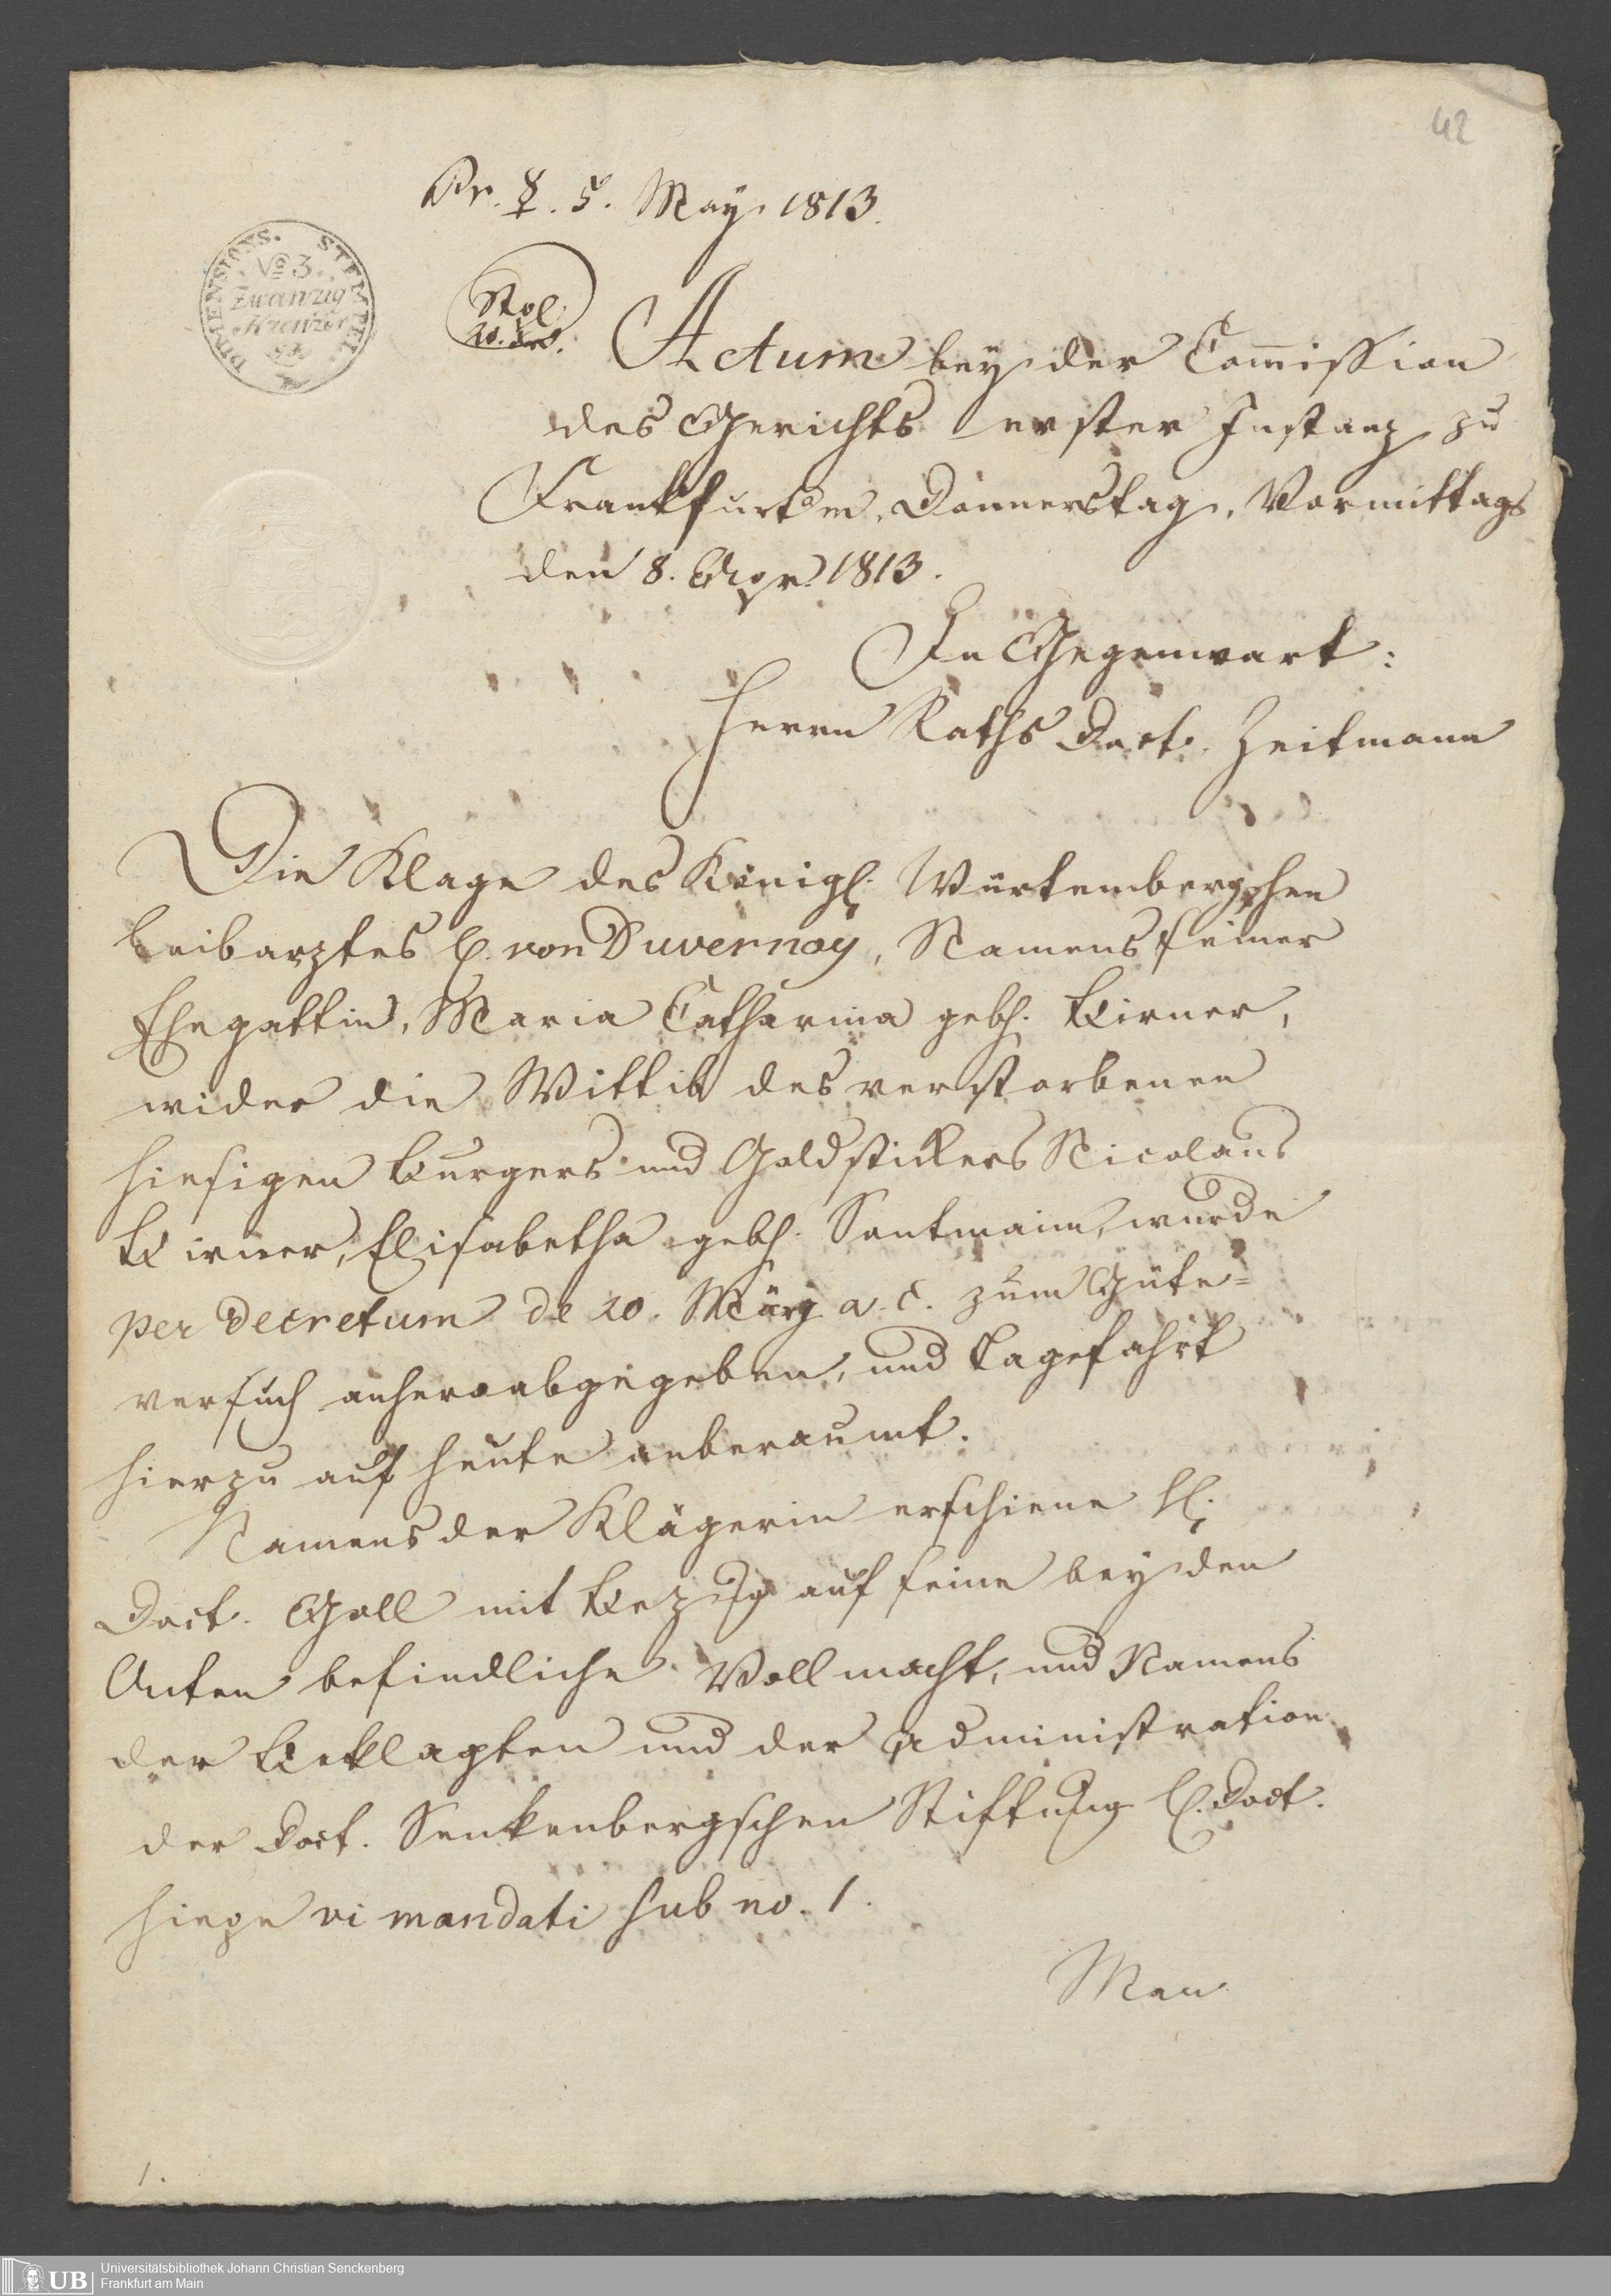 42
Pr. ☿. 5. May 1813.
DIMENSIONS. STEMPEL.
No 3.
Zwanzig
Kreuzer
Stpl.
20. Xr.
Actum bey der Com̅ission
des Gerichts erster Instanz zu
Frankfurt am, Donnerstag, Vormittags
den 8. Apr. 1813.
In Gegenwart:
Herrn Raths Doct. Zeitmann
Die Klage des Königl. Würtembergschen
Leibarztes H. von Duvernoy, Namens seiner
Ehegattin, Maria Catharina gebh. Birner,
wider die Wittib des verstorbenen
hiesigen Burgers und Goldstickers Nicolaus
Birner, Elisabetha gebh. Santmann, wurde
per decretum de 20. März a. c. zum Güte-
versuch anhero abgegeben, und Tagefahrt
hierzu auf heute anberaumt.
Namens der Klägerin erschiene H.
Doct. Goll mit Bezug auf seine bey den
Acten befindliche Vollmacht, und Namens
der Beklagten und der Administration
der Doct. Senkenbergschen Stiftung H. Doct.
Hiepe vi mandati sub no. 1.
Man
1.
UB Universitätsbibliothek Johann Christian Senckenberg
Frankfurt am Main